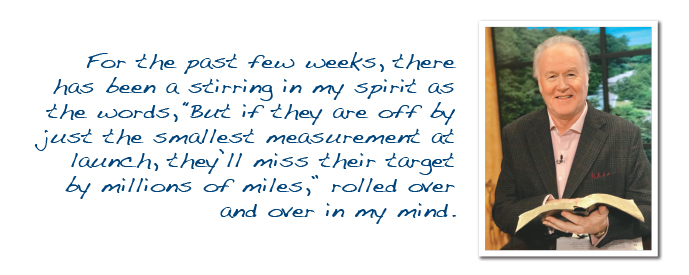 For the past few weeks, there
has been a stirring in my spirit as
the words,"But if they are off by
just the smallest measurement at
launch, they'll miss their target
by millions of miles," rolled over
and over in my mind.